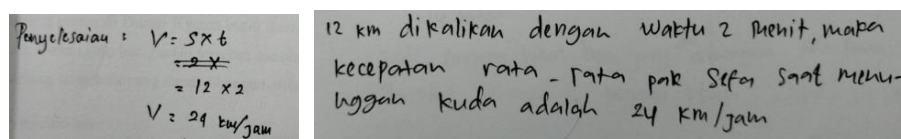 Penyelesaian : V = S x t
= 2 x
= 12 x 2
V = 24 km/jam
12 km dikalikan dengan waktu 2 menit, maka
kecepatan rata-rata pak Sefa saat menu-
nggah kuda adalah 24 km/jam